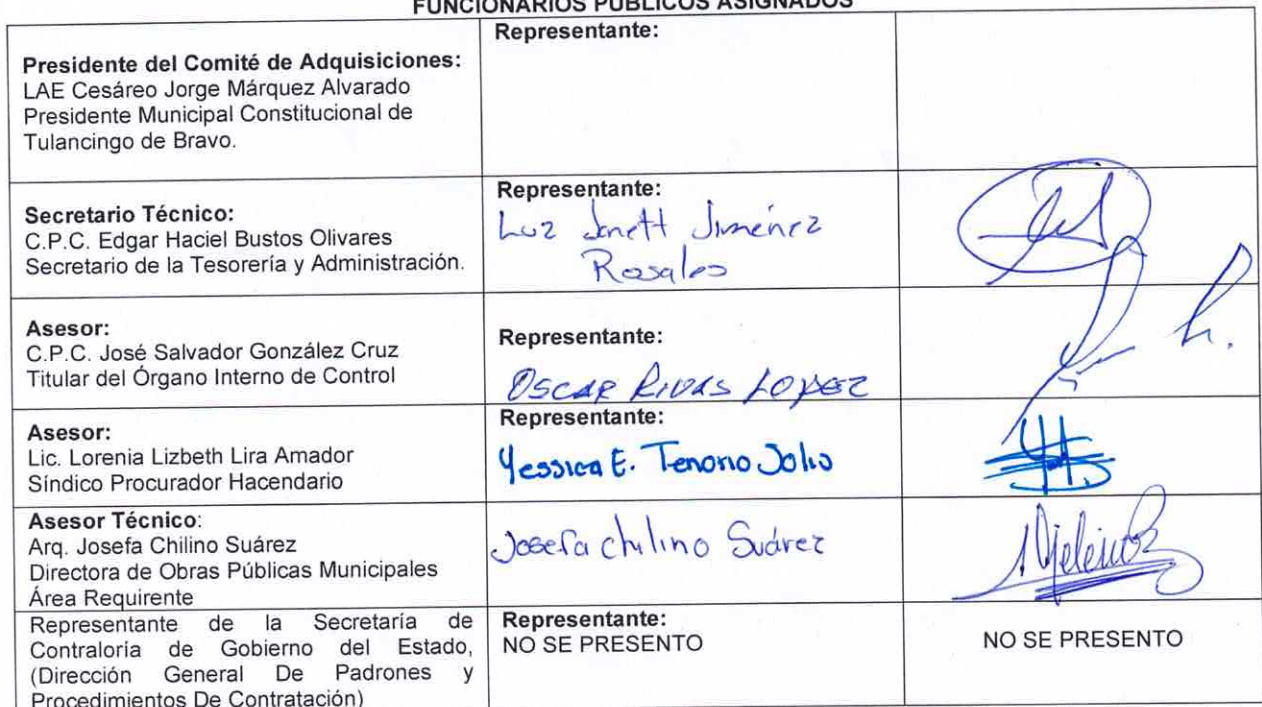 FUNCIONARIOS PÚBLICOS ASIGNADOS
Presidente del Comité de Adquisiciones:
LAE Cesáreo Jorge Márquez Alvarado
Presidente Municipal Constitucional de
Tulancingo de Bravo.
Representante:
Secretario Técnico:
C.P.C. Edgar Haciel Bustos Olivares
Secretario de la Tesorería y Administración.
Representante:
Luz Janett Jiménez
Rosales
Asesor:
C.P.C. José Salvador González Cruz
Titular del Órgano Interno de Control
Representante:
OSCAR RIVAS LOPEZ
Asesor:
Lic. Lorenia Lizbeth Lira Amador
Síndico Procurador Hacendario
Representante:
Yessica E. Tenorio Solis
Asesor Técnico:
Arq. Josefa Chilino Suárez
Directora de Obras Públicas Municipales
Área Requirente
Josefa chilino Suárez
Representante de la Secretaría de
Contraloría de Gobierno del Estado,
(Dirección General De Padrones y
Procedimientos De Contratación)
Representante:
NO SE PRESENTO
NO SE PRESENTO